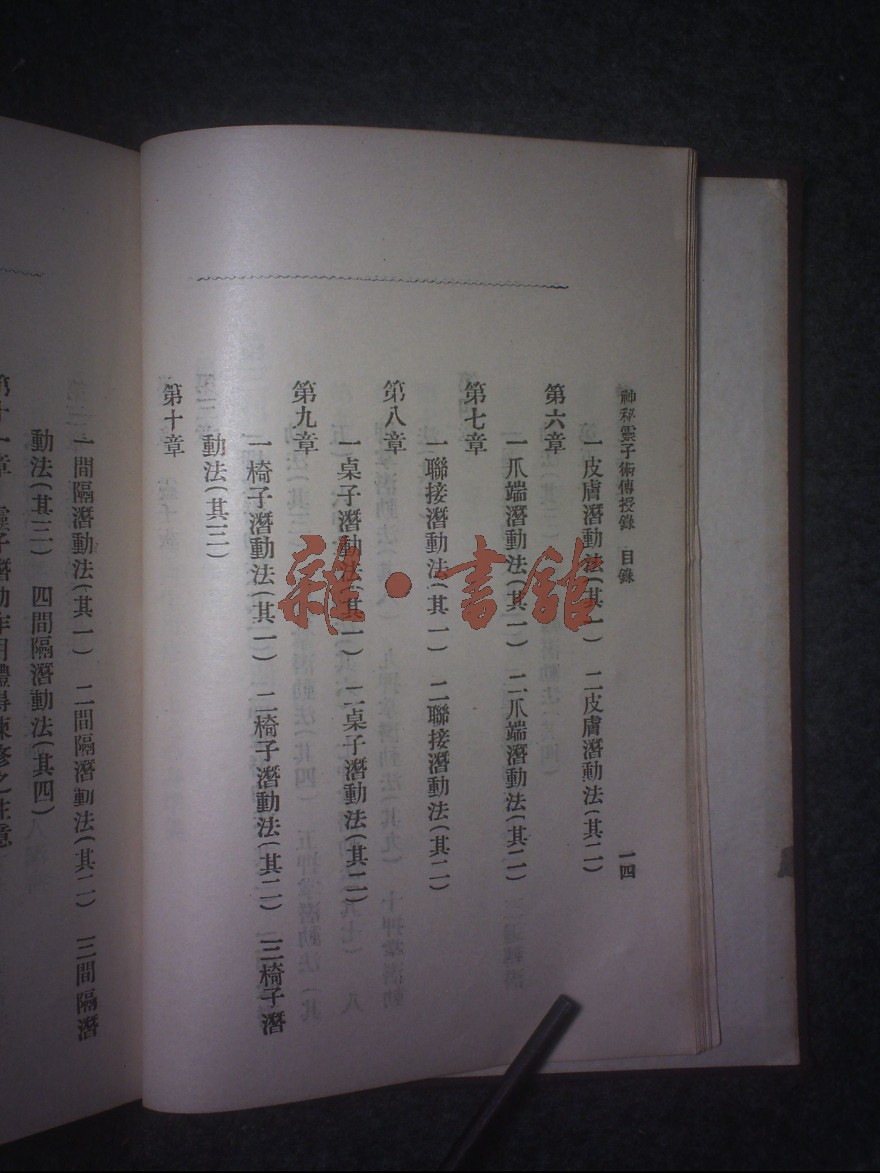 神秘靈子術傳授錄 目錄 一四
一皮膚潛動法(其一) 二皮膚潛動法(其二)
第六章
一爪端潛動法(其一) 二爪端潛動法(其二)
第七章
一聯接潛動法(其一) 二聯接潛動法(其二)
第八章
一桌子潛動法(其一) 二桌子潛動法(其二)
第九章
一椅子潛動法(其一) 二椅子潛動法(其二) 三椅子潛
動法(其三)
第十章
一間隔潛動法(其一) 二間隔潛動法(其二) 三間隔潛
動法(其三) 四間隔潛動法(其四)
第十一章 靈子潛動作用體得練修之注意
雜·書館